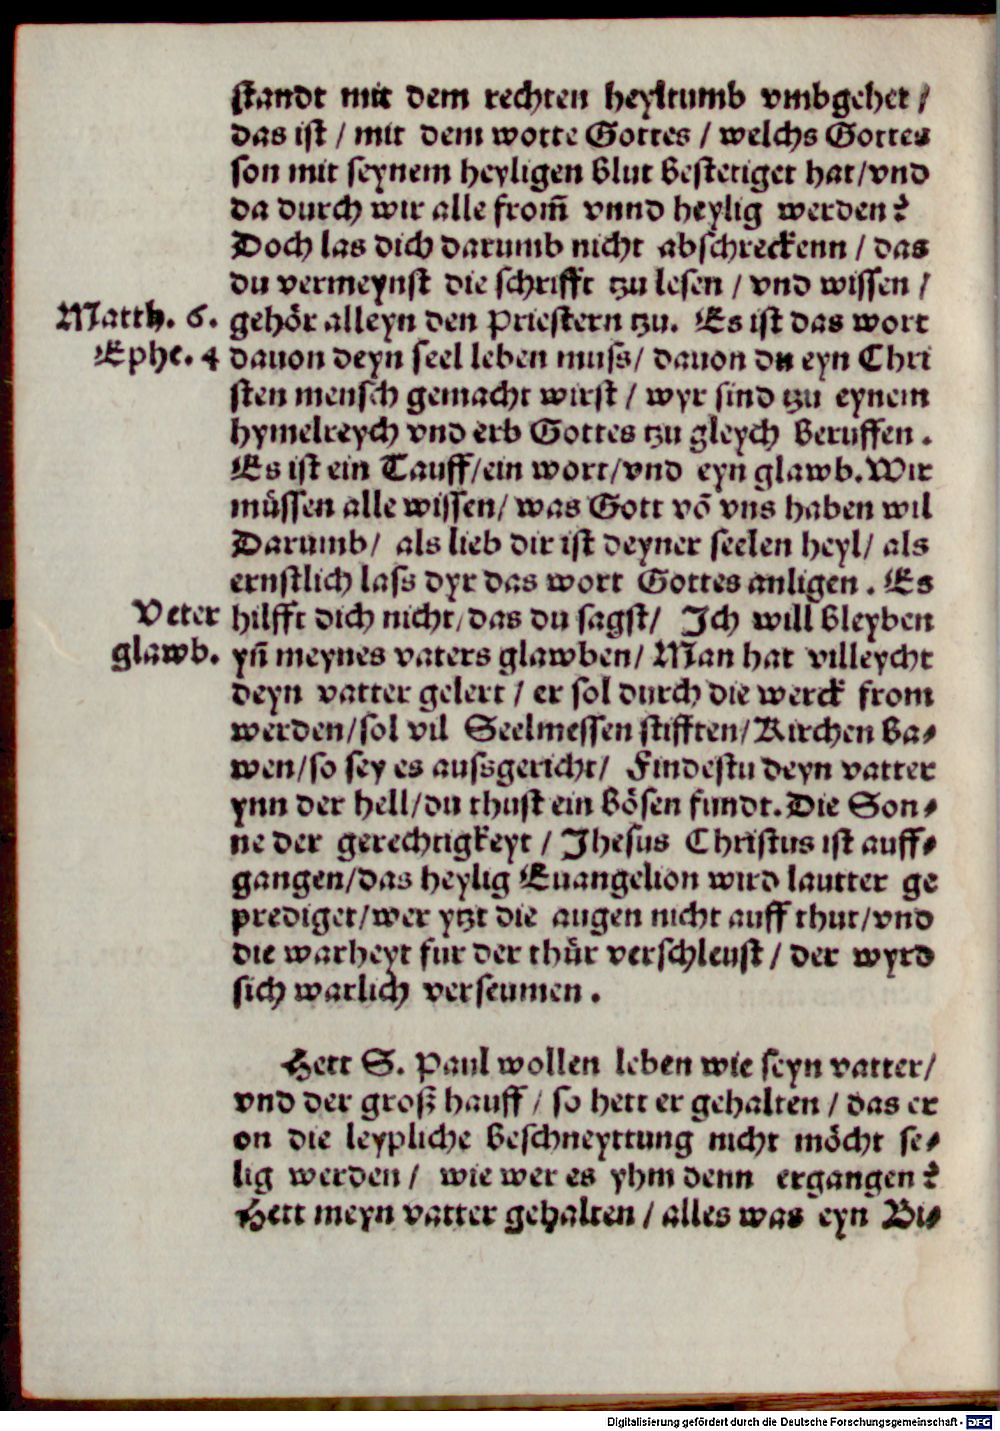 standt mit dem rechten heyltumb vmbgehet /
das ist / mit dem worte Gottes / welchs Gottes
son mit seynem heyligen blut bestetiget hat/vnd
da durch wir alle from̃ vnnd heylig werden?
Doch las dich darumb nicht abschreckenn / das
du vermeynst die schrifft tzu lesen / vnd wissen /
Matth. 6. gehör alleyn den Priestern tzu. Es ist das wort
Ephe. 4 dauon deyn seel leben muss/ dauon du eyn Chri
sten mensch gemacht wirst / wyr sind tzu eynem
hymelreych vnd erb Gottes tzu gleych beruffen.
Es ist ein Tauff/ein wort/vnd eyn glawb. Wir
müssen alle wissen/ was Gott võ vns haben wil
Darumb/ als lieb dir ist deyner seelen heyl/ als
ernstlich lass dyr das wort Gottes anligen. Es
Veter hilfft dich nicht/das du sagst/ Ich will bleyben
glawb. yñ meynes vaters glawben/ Man hat villeycht
deyn vatter gelert / er sol durch die werck from
werden/sol vil Seelmessen stifften/Kirchen ba⸗
wen/so sey es aussgericht/ Findestu deyn vatter
ynn der hell/du thust ein bösen fundt. Die Son⸗
ne der gerechtigkeyt / Jhesus Christus ist auff⸗
gangen/das heylig Euangelion wird lautter ge
prediget/wer ytzt die augen nicht auff thut/vnd
die warheyt fur der thür verschleust / der wyrd
sich warlich verseumen.
Hett S. Paul wollen leben wie seyn vatter/
vnd der groß hauff / so hett er gehalten / das er
on die leypliche beschneyttung nicht möcht se⸗
lig werden / wie wer es yhm denn ergangen?
Hett meyn vatter gehalten / alles was eyn Bi⸗
Digitalisierung gefördert durch die Deutsche Forschungsgemeinschaft - DFG